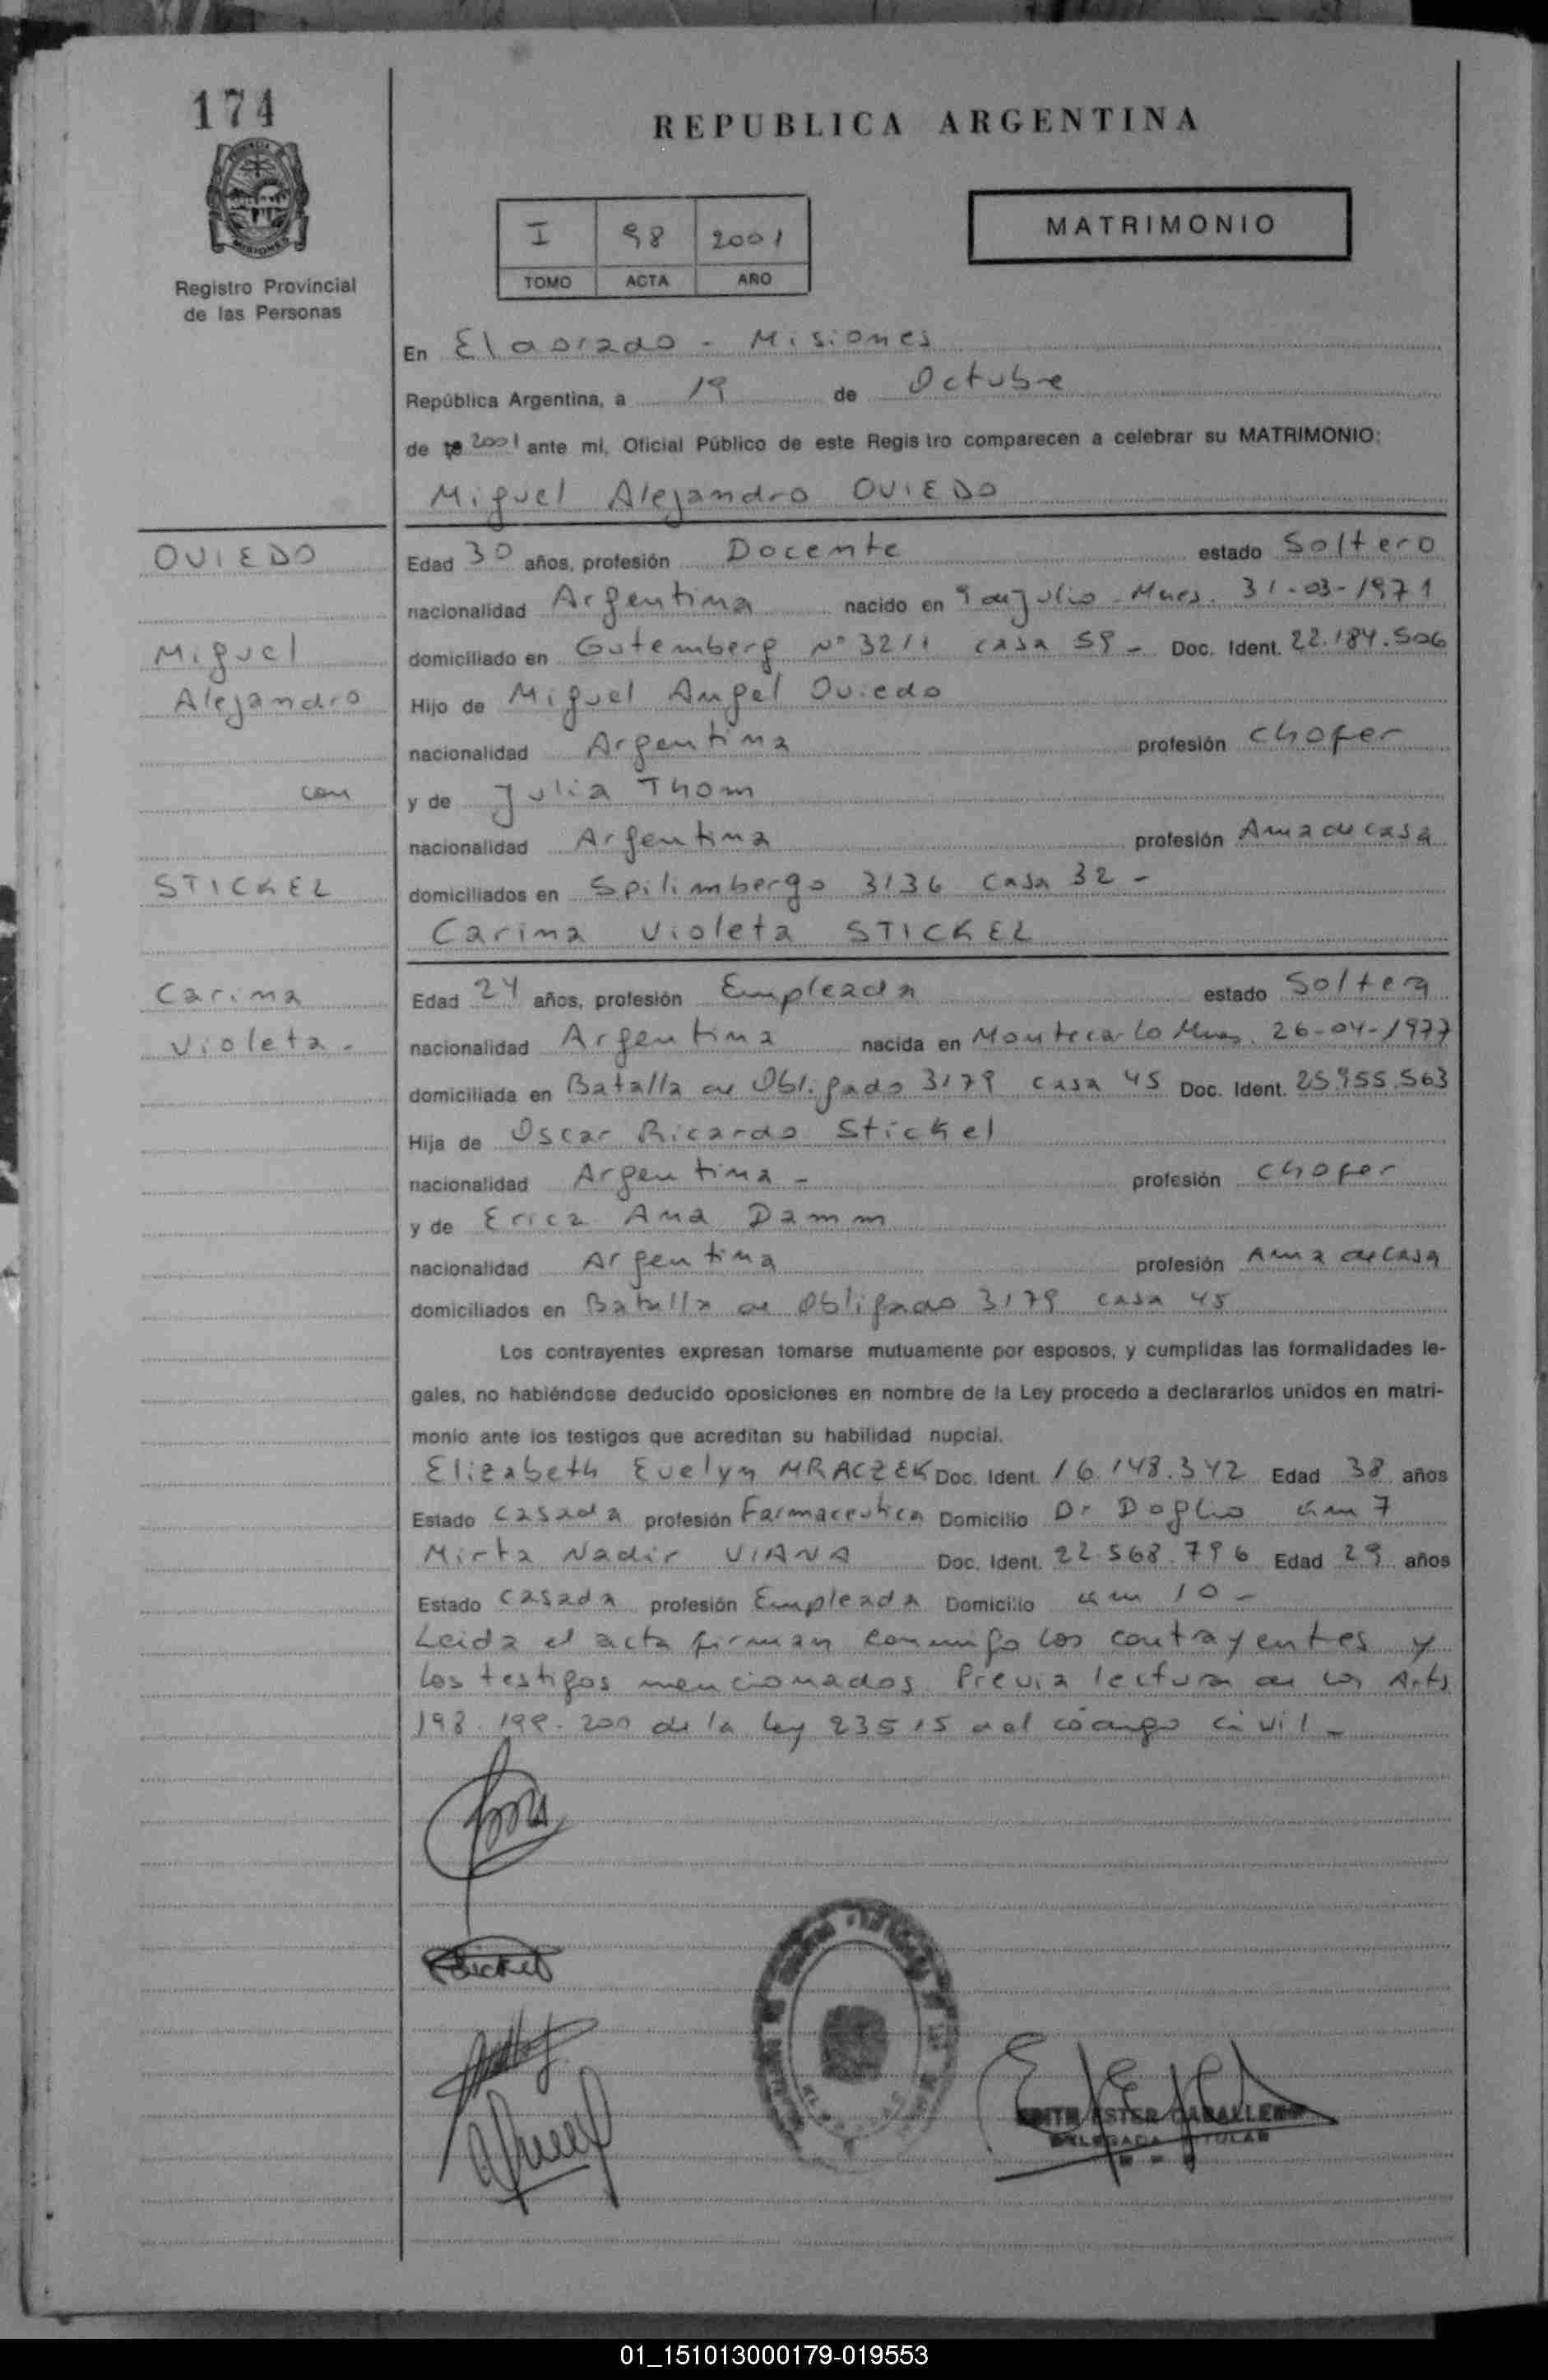 174
REPUBLICA ARGENTINA
MATRIMONIO
I 98 2001
TOMO ACTA AÑO
Registro Provincial
de las Personas
En Eldorado - Misiones
República Argentina, a 19 de Octubre
de 2001 ante mí, Oficial Público de este Registro comparecen a celebrar su MATRIMONIO:
Miguel Alejandro OVIEDO
OVIEDO
Miguel
Alejandro
con
STICKEL
Carina
Violeta -
Edad 30 años, profesión Docente estado Soltero
nacionalidad Argentina nacido en 9 de Julio Mnes. 31-03-1971
domiciliado en Gutemberg Nº 3211 casa 59 - Doc. Ident. 22.184.506
Hijo de Miguel Angel Oviedo
nacionalidad Argentina profesión Chofer
y de Julia Thom
nacionalidad Argentina profesión Ama de casa
domiciliados en Spilimbergo 3136 Casa 32 -
Carina Violeta STICKEL
Edad 24 años, profesión Empleada estado Soltera
nacionalidad Argentina nacida en Montecarlo Mnes. 26-04-1977
domiciliada en Batalla de Obligado 3179 casa 45 Doc. Ident. 25.955.563
Hija de Oscar Ricardo Stickel
nacionalidad Argentina - profesión Chofer
y de Erica Ana Damm
nacionalidad Argentina profesión Ama de casa
domiciliados en Batalla de Obligado 3179 casa 45
Los contrayentes expresan tomarse mutuamente por esposos, y cumplidas las formalidades le-
gales, no habiéndose deducido oposiciones en nombre de la Ley procedo a declararlos unidos en matri-
monio ante los testigos que acreditan su habilidad nupcial.
Elizabeth Evelyn MRACZEK Doc. Ident. 16.148.342 Edad 38 años
Estado Casada profesión Farmaceutica Domicilio Dr Doglio km 7
Mirta Nadir VIANA Doc. Ident. 22.568.796 Edad 29 años
Estado Casada profesión Empleada Domicilio km 10 -
Leida el acta firman conmigo los contrayentes y
los testigos mencionados. Previa lectura de los Arts
198. 199. 200 de la ley 23515 del código civil -
EDITH ESTER CABALLERO
DELEGADA TITULAR
01_151013000179-019553